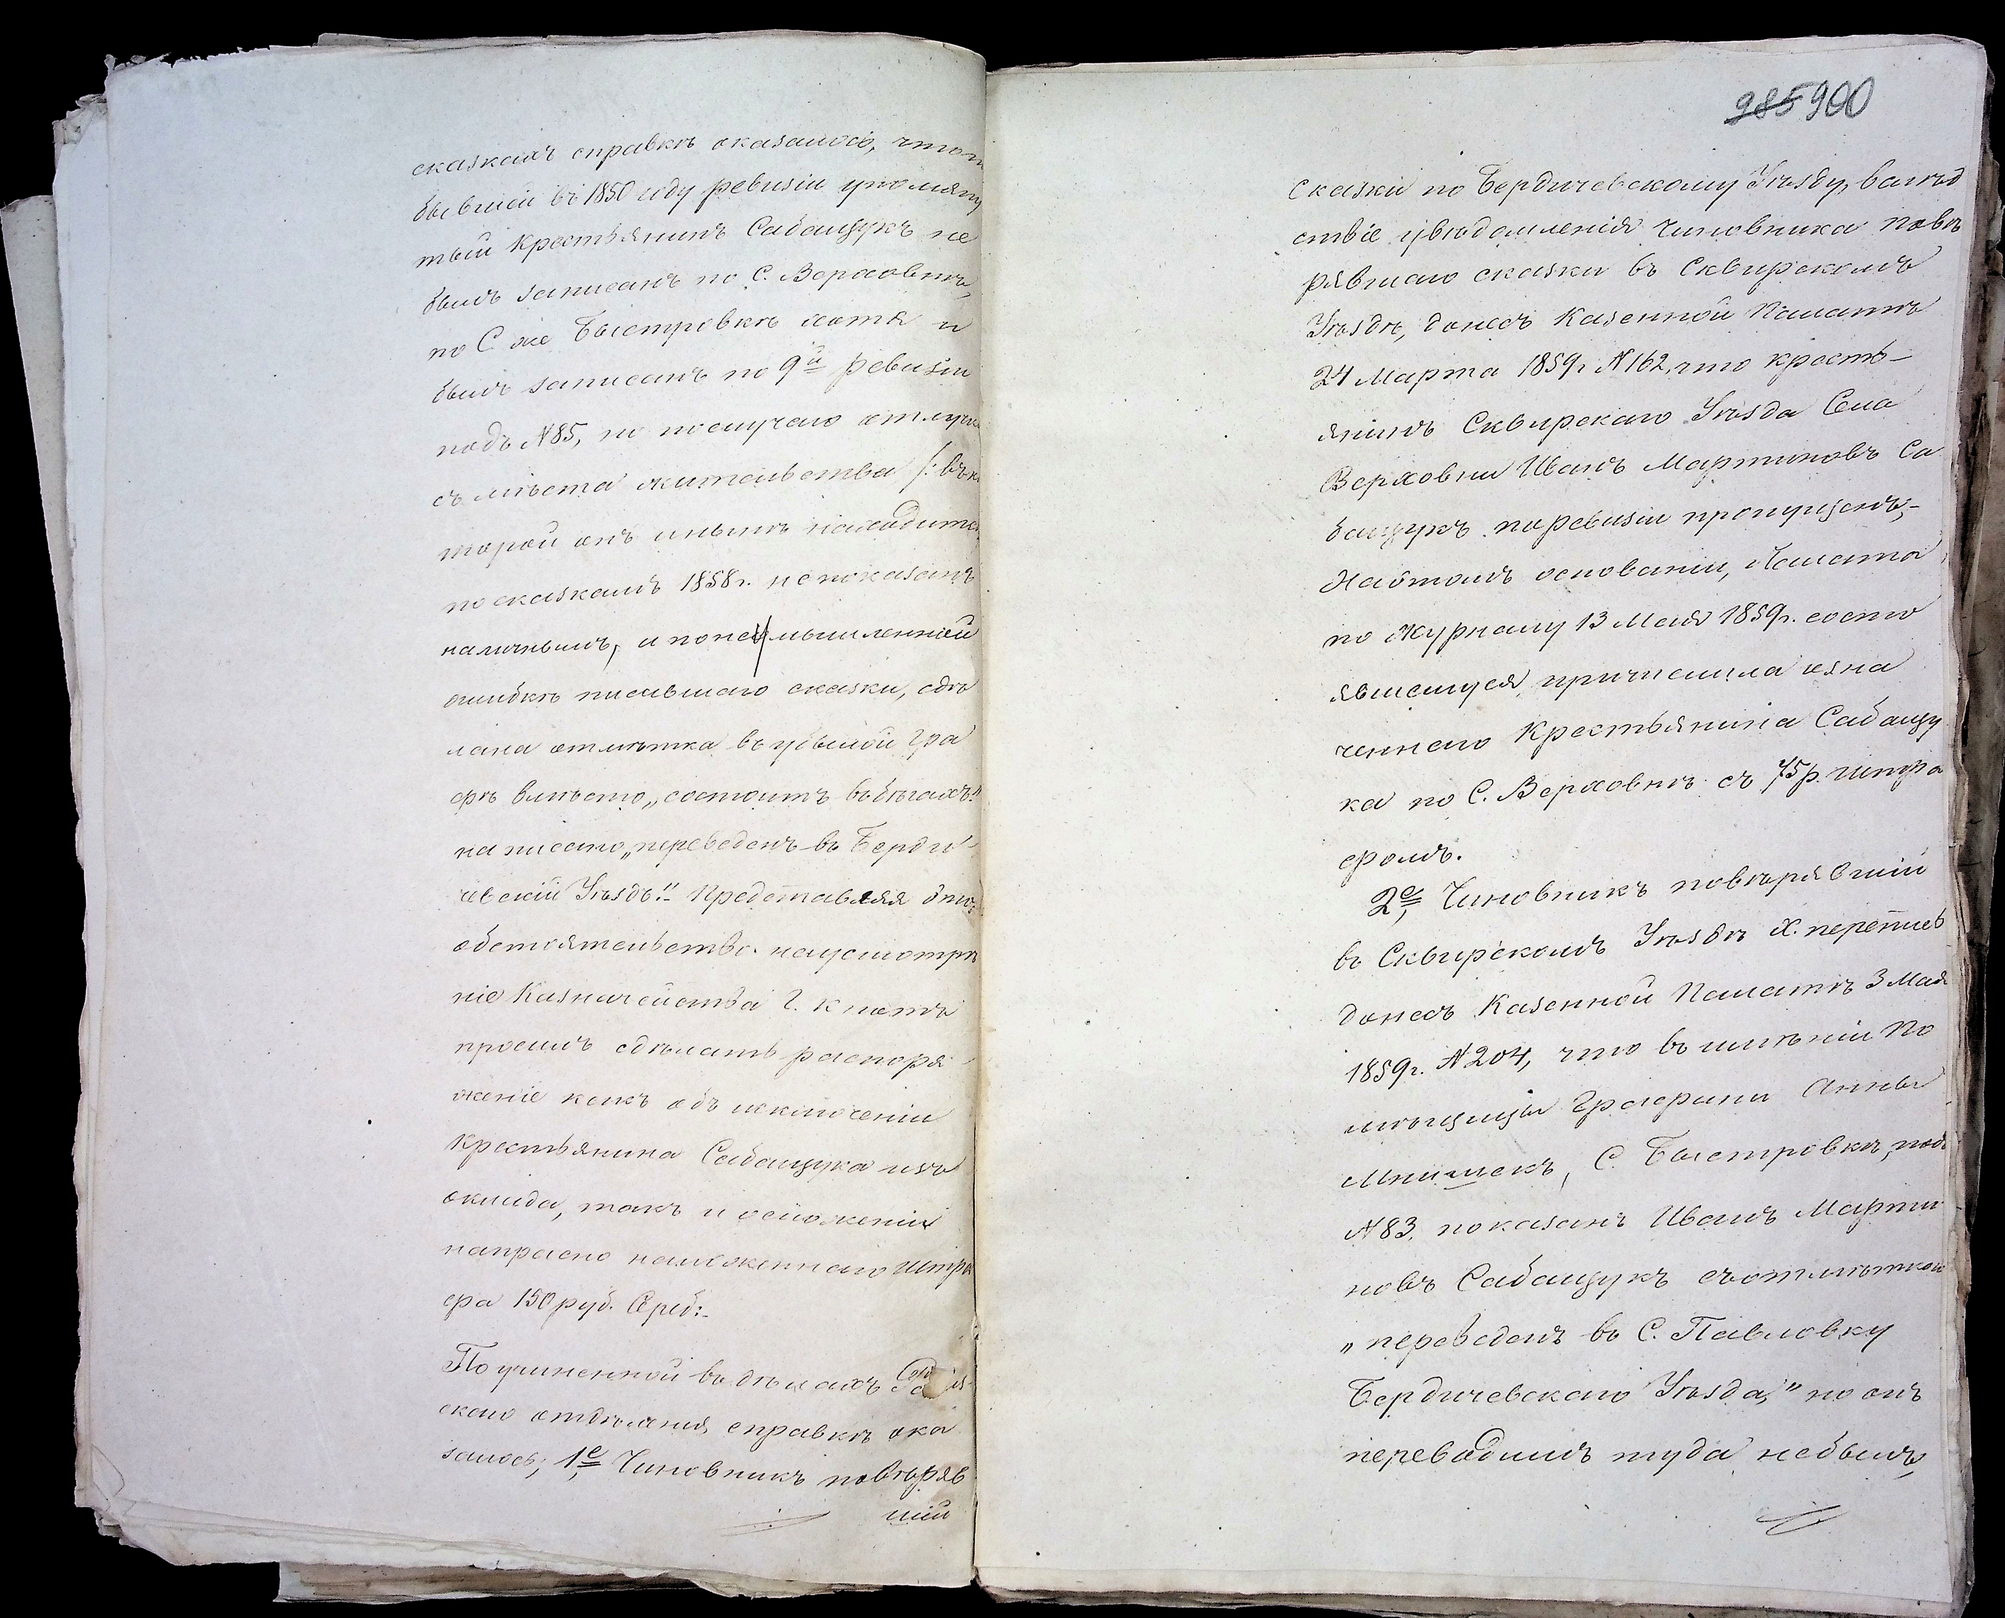 сказкахъ справкѣ оказалось, что по
бывшей въ 1850 году ревизіи упомяну
тый Крестьянинъ Сабащукъ не
былъ записанъ по С. Верховнѣ,
по С. же Быстровкѣ хотя и
былъ записанъ по 9й ревизіи
подъ №85, но по случаю отлучки
съ мѣста жительства /: въ ко
торой онъ и нынѣ находится
по сказкамъ 1858 г. не показанъ
наличнымъ, и по неумышленной
ошибкѣ писавшаго сказки, сдѣ
лана отмѣтка въ убылой гра
фѣ вмѣсто „состоитъ въ бѣгахъ"
написано „переведенъ въ Берди
чевскій Уѣздъ". Представляя это
обстоятельство на усмотрѣ
ніе Казначейства Г.
просилъ сдѣлать распоря
женіе какъ объ исключеніи
Крестьянина Сабащука изъ
оклада, такъ и о сложеніи
напрасно наложеннаго штра
фа 150 руб. Сереб:
По учиненной въ дѣлахъ
скаго отдѣленія справкѣ ока
залось, 1е, Чиновникъ повѣряв
шій
985 900
сказки по Бердичевскому Уѣзду, вслѣд
ствіе увѣдомленія Чиновника повѣ
рявшаго сказки въ Сквирскомъ
Уѣздѣ, донесъ Казенной Палатѣ
24 Марта 1859 г. №162, что кресть-
янинъ Сквирскаго Уѣзда Села
Верховни Иванъ Мартиновъ Са
бащукъ по ревизіи пропущенъ,-
На этомъ основаніи, Палата
по Журналу 13 Мая 1859 г. состо
явшемуся, причислила озна
ченнаго Крестьянина Сабащу
ка по С. Верховнѣ съ 75 р. штра
фомъ.
2е, Чиновникъ повѣрявшій
въ Сквирскомъ Уѣздѣ X. перепись
донесъ Казенной Палатѣ 3 Мая
1859 г. №204, что въ имѣніи По
мѣщицы Графини Анны
Мнишекъ, С. Быстровкѣ, подъ
№83. показанъ Иванъ Марти
новъ Сабащукъ съ отмѣткою
„переведенъ въ С. Павловку
Бердичевскаго Уѣзда," но онъ
переводимъ туда не былъ,